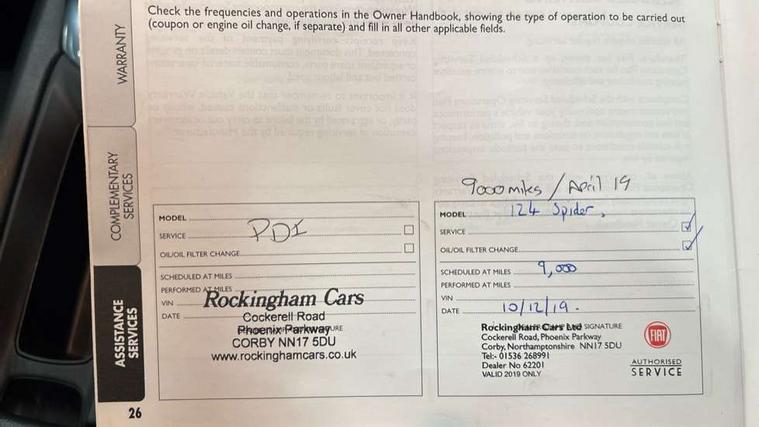 Check the frequencies and operations in the Owner Handbook, showing the type of operation to be carried out
(coupon or engine oil change, if separate) and fill in all other applicable fields.
WARRANTY
COMPLEMENTARY
SERVICES
ASSISTANCE
SERVICES
26
MODEL
SERVICE PDI
OIL/OIL FILTER CHANGE
SCHEDULED AT MILES
PERFORMED AT MILES
VIN
DATE
Rockingham Cars
Cockerell Road
Phoenix Parkway
CORBY NN17 5DU
www.rockinghamcars.co.uk
9000 miles / April 19
MODEL 124 Spider.
SERVICE
OIL/OIL FILTER CHANGE
SCHEDULED AT MILES 9,000
PERFORMED AT MILES
VIN
DATE 10/12/19.
Rockingham Cars Ltd SIGNATURE
Cockerell Road, Phoenix Parkway
Corby, Northamptonshire NN17 5DU
Tel:- 01536 268991
Dealer No 62201
VALID 2019 ONLY
FIAT
AUTHORISED
SERVICE